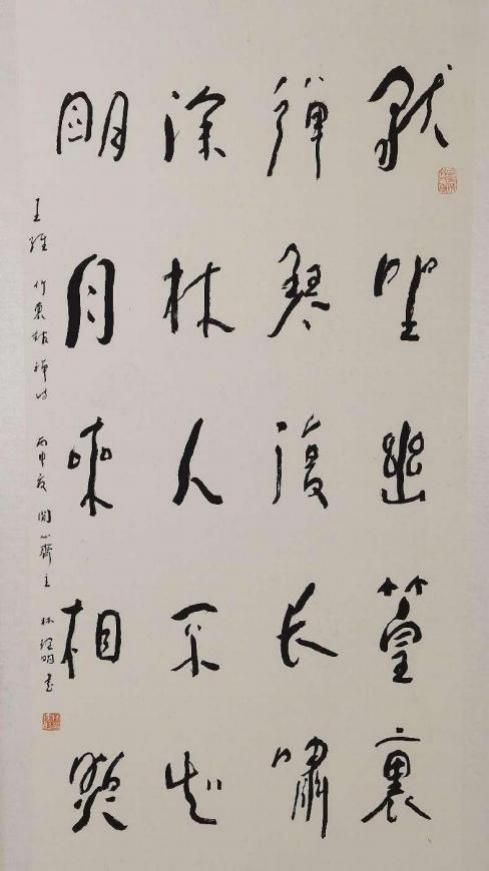 獨坐幽篁裏
彈琴復长嘯
深林人不知
明月來相照
王維 竹裏館 詩 丙申 心齋主 林 明書